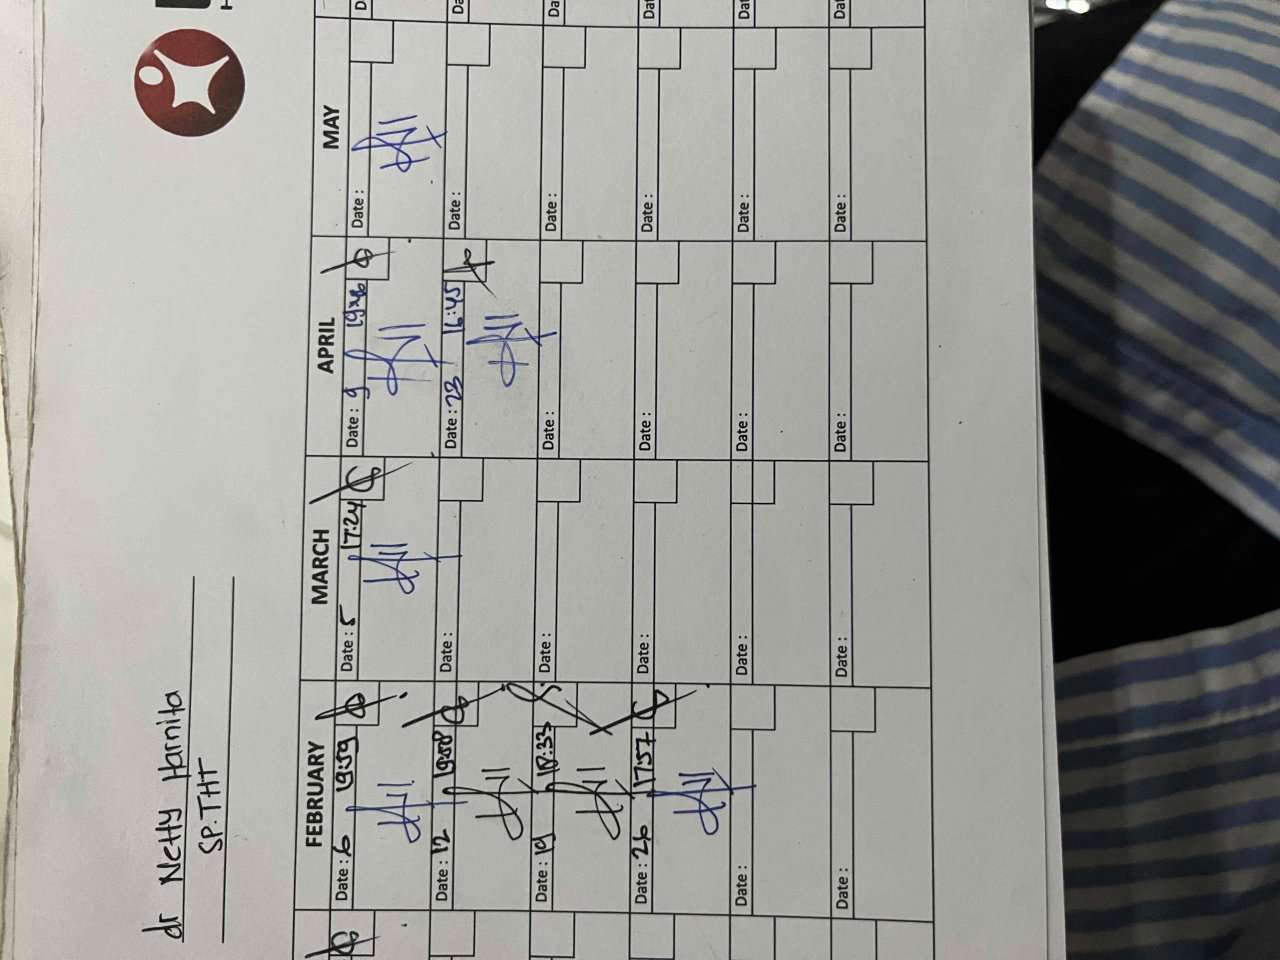 dr Netty Harnita
SP.THT
FEBRUARY MARCH APRIL MAY
Date : 6 19:59
Date : 5 17:24
Date : 9
Date :
Date : 12 19:58
Date :
Date : 23 16:45
Date :
Date : 19 18:33
Date :
Date :
Date :
Date : 26 17:57
Date :
Date :
Date :
Date :
Date :
Date :
Date :
Date :
Date :